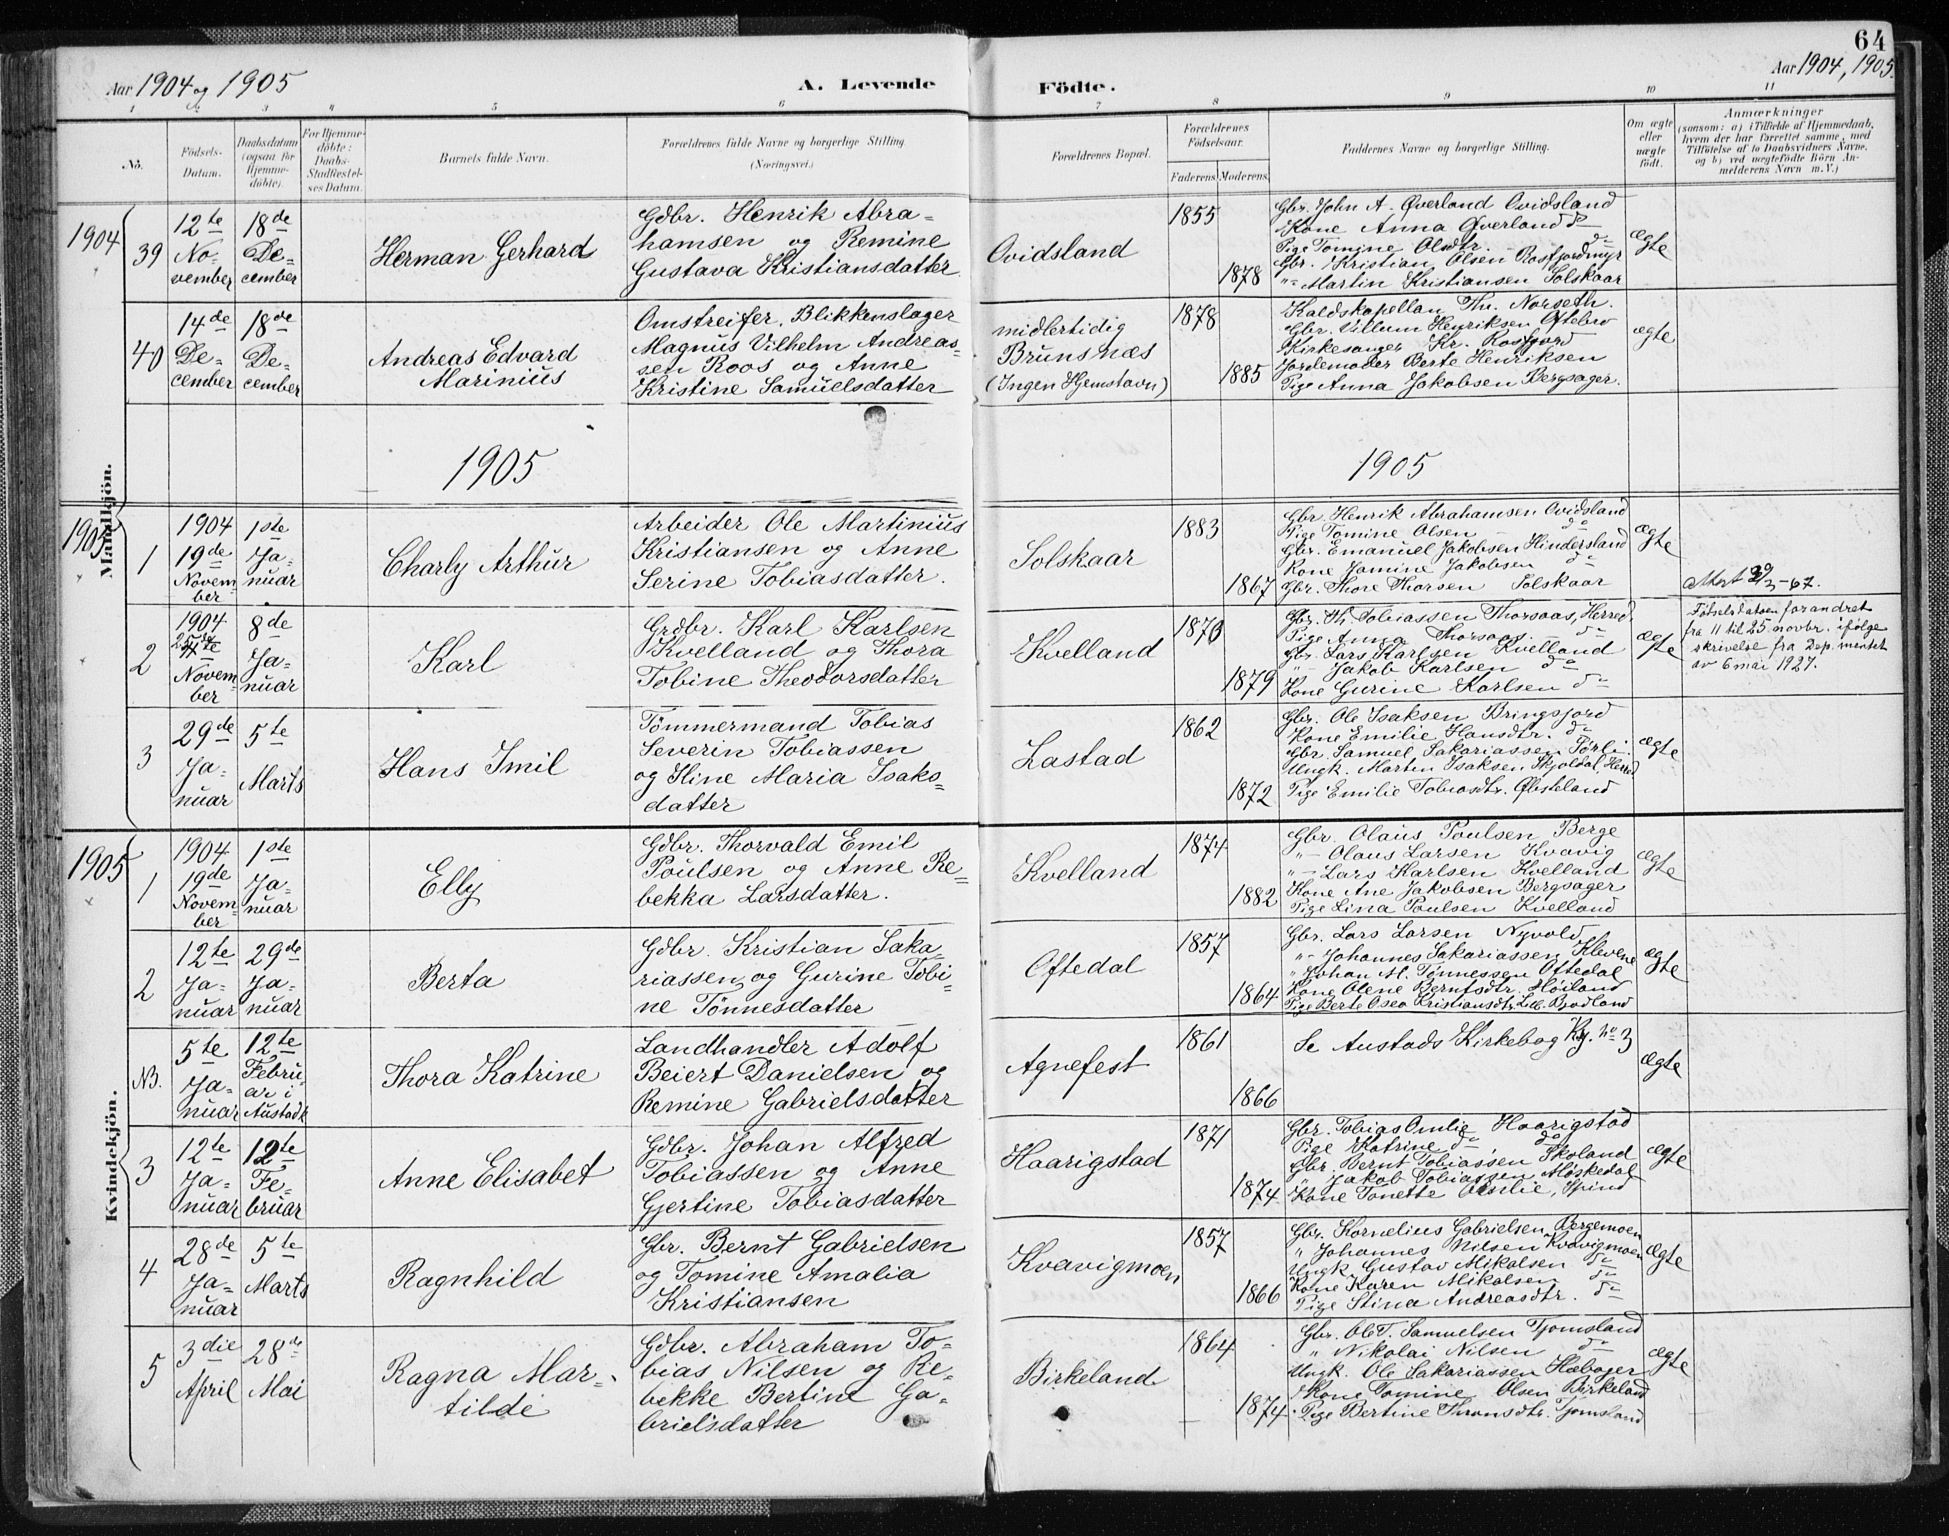 64
Aar 1904 og 1905
A. Levende
Födte.
Aar 1904, 1905.
1 2 3 4 5 6 7 8 9 10 11
No.
Födsels-
Datum.
Daabsdatum
(ogsaa for
Hjemme-
döbte).
For Hjemme-
döbte:
Daabs-
Stadfæstel-
ses Datum.
Barnets fulde Navn.
Forældrenes fulde Navne og borgerlige Stilling
(Næringsvei.)
Forældrenes Bopæl.
Forældrenes
Födselsaar.
Faderens.
Moderens.
Faddernes Navne og borgerlige Stilling.
Om ægte
eller
uægte
födt.
Anmærkninger
(saasom: a) i Tilfælde af Hjemmedaab,
hvem der har forrettet samme, med
Tilföielse af to Daabsvidners Navne,
og b) ved uægtefödte Börn An-
melderens Navn m. V.)
Mandkjön.
1904
39
12te
No-
vember
18de
De-
cember
Herman Gerhard
Gdbr. Henrik Abra-
hamsen og Remine
Gustava Kristiansdatter
Ovidsland
1855
1878
Gbr. John A. Øverland Ovidsland
Kone Anna Øverland do
Pige Tomine Olsdtr. do
Gbr. Kristian Olsen Rosfjordmyr
"- Martin Kristiansen Solskaar
ægte
40
14de
De-
cember
18de
De-
cember
Andreas Edvard
Marinius
Omstreifer, Blikkenslager
Magnus Vilhelm Andreas-
sen Roos og Anne
Kristine Samuelsdatter
midlertidig
Brunsnæs
(Ingen Hjemstavn)
1878
1885
Kaldskapellan Th. Norseth.
Gbr. Villum Henriksen Øftebro
Kirkesanger Kr. Rosfjord
Jordemoder Berte Henriksen
Pige Anna Jakobsen Bergsager.
ægte
1905
1905
1905
1
1904
19de
Novem-
ber
1ste
Ja-
nuar
Charly Arthur
Arbeider Ole Martinius
Kristiansen og Anne
Serine Tobiasdatter.
Solskaar
1883
1867
Gbr. Henrik Abrahamsen Ovidsland
Pige Tomine Olsen do
Gbr. Emanuel Jakobsen Hindersland
Kone Jomine Jakobsen do
Gbr. Thore Thorsen Solskaar
ægte
2
1904
25de
Novem-
ber
8de
Ja-
nuar
Karl
Grdbr. Karl Karlsen
Kvelland og Thora
Tobine Theodorsdatter
Kvelland
1870
1879
Gbr. Th. Tobiassen Thorsaas, Herred
Pige Anna Thorsaas do
Gbr. Lars Karlsen Kvelland
"- Jakob Karlsen do
Kone Gurine Karlsen do
ægte
Fødselsdatoen forandret
fra 11 til 25 novbr. ifølge
skrivelse fra Dep. mentet
av 6 mai 1927.
3
29de
Ja-
nuar
5te
Marts
Hans Imil
Tömmermand Tobias
Severin Tobiassen
og Stine Maria Isaks-
datter
Lastad
1862
1872
Gbr. Ole Isaksen Bringsjord
Kone Emilie Hansdtr. do
Gbr. Samuel Sakariassen Förli
Ungk. Martin Isaksen Skjoldal, Herred
Pige Emilie Tobiasdtr. Øbsteland
ægte
Kvindekjön.
1905
1
1904
19de
Novem-
ber
1ste
Ja-
nuar
Elly
Gdbr. Thorvald Emil
Poulsen og Anne Re-
bekka Larsdatter.
Kvelland
1874
1882
Gbr. Olaus Poulsen Berge
"- Olaus Larsen Kvavig
"- Lars Karlsen Kvelland
Kone Ane Jakobsen Bergsager
Pige Lina Poulsen Kvelland
ægte
2
12te
Ja-
nuar
29de
Ja-
nuar
Berta
Gdbr. Kristian Saka-
riassen og Gurine Tobi-
ne Tönnesdatter
Oftedal
1857
1864
Gbr. Lars Larsen Nyvold
"- Johannes Sakariassen Klevene
" Johan M. Tönnessen Oftedal
Kone Olene Berntsdtr. Höiland
Pige Berte Osea Kristiansdtr. Lill. Rødland
ægte
NB.
5te
Ja-
nuar
12te
Febru-
ar i
Austad k
Thora Katrine
Landhandler Adolf
Beiert Danielsen og
Remine Gabrielsdatter
Agnefest
1861
1866
Se Austads Kirkebog Kj. No 3
ægte
3
12te
Ja-
nuar
12te
Fe-
bruar
Anne Elisabet
Gdbr. Johan Alfred
Tobiassen og Anne
Gjertine Tobiasdatter
Haarigstad
1871
1874
Gbr. Tobias Omlie Haarigstad
Pige Katrine do do
Gbr. Bernt Tobiassen Skoland
" Jakob Tobiassen Møskedal
Kone Tonette Omlie, Spind
ægte
4
28de
Ja-
nuar
5te
Marts
Ragnhild
Gbr. Bernt Gabrielsen
og Tomine Amalia
Kristiansen
Kvavigmoen
1857
1866
Gbr. Kornelius Gabrielsen Bergemoen
" Johannes Nilsen Kvavigmoen
Ungk Gustav Mikalsen do
Kone Karen Mikalsen do
Pige Stina Andreasdtr. do
ægte
5
3die
April
28de
Mai
Ragna Mar-
tilde
Gdbr. Abraham To-
bias Nilsen og Re-
bekke Bertine Ga-
brielsdatter
Birkeland
1864
1874
Gbr. Ole T. Samuelsen Tjomsland
" Nikolai Nilsen do
Ungk. Ole Sakariassen Hæbager
Kone Tomine Olsen Birkeland
Pige Bertine Thronsdtr. Tjomsland
ægte